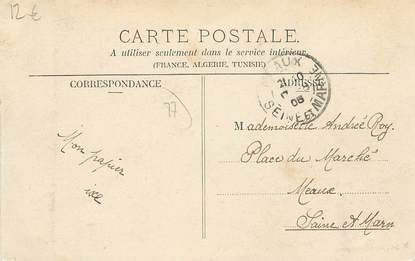 12 €
CARTE POSTALE
A utiliser seulement dans le service intérieur
(FRANCE, ALGERIE, TUNISIE)
CORRESPONDANCE
77
Mon papier
Mademoiselle André Roy.
Place du Marché
Meaux
Seine et Marn
AUX
SEINE ET MARNE
08